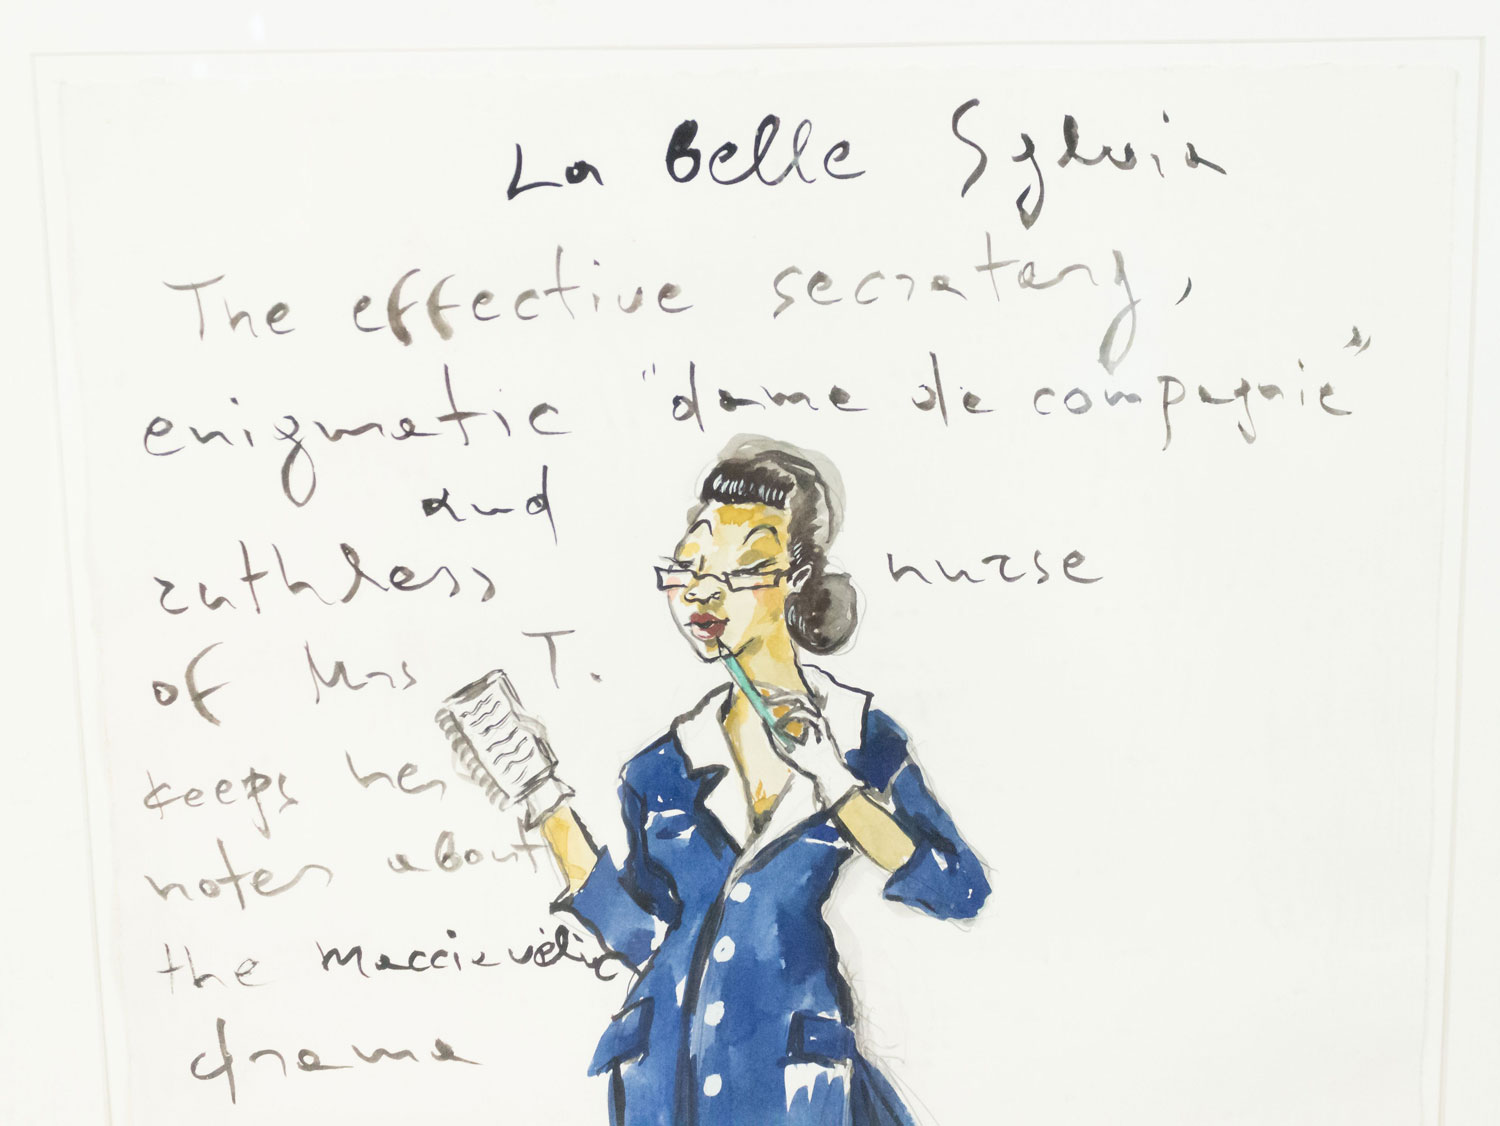 La Belle Sylvia
The effective secratary,
enigmatic "dame de compagnie"
and
ruthless nurse
of Mrs T.
keeps her
notes about
the Maccievélic
drama